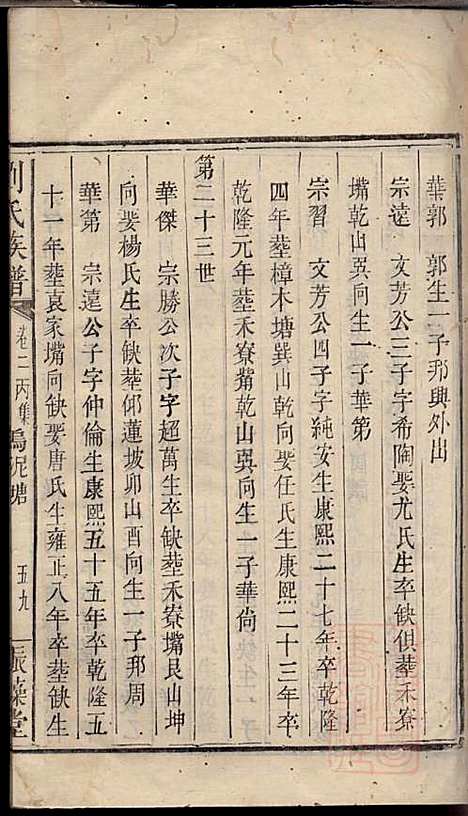 華郭　郭生一子邦興外出
宗遠　文芳公三子字希陶娶尤氏生卒缺俱塟禾寮
嘴乾山巽向生一子華第
宗習　文芳公四子字純安生康熙二十七年卒乾隆
四年塟樟木塘巽山乾向娶任氏生康熙二十三年卒
乾隆元年塟禾寮嘴乾山巽向生一子華尚
第二十三世
華傑　宗勝公次子字超萬生卒缺塟禾寮嘴艮山坤
向娶楊氏生卒缺塟仰蓮坡卯山酉向生一子邦周
華第　宗遠公子字仲倫生康熙五十五年卒乾隆五
十一年塟袁家嘴向缺娶唐氏生雍正八年卒塟缺生
劉氏族譜　卷二丙集　烏泥塘　五九　振藻堂